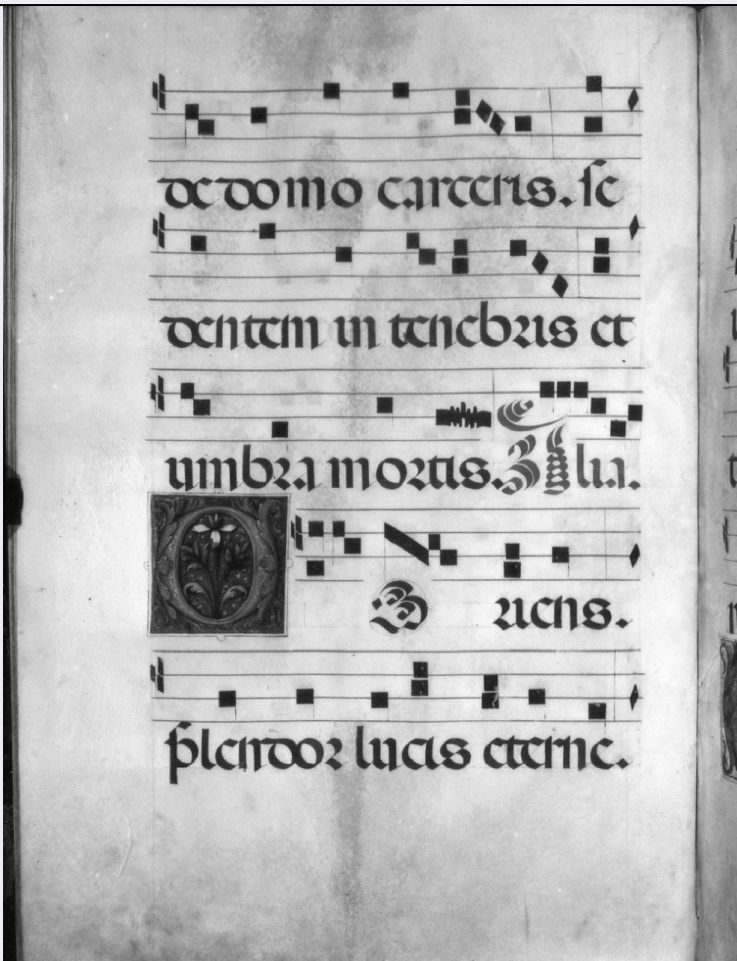 de domo carceris. se
dentem in tenebris et
umbra mortis. Alia.
O Oriens.
splendor lucis eterne.